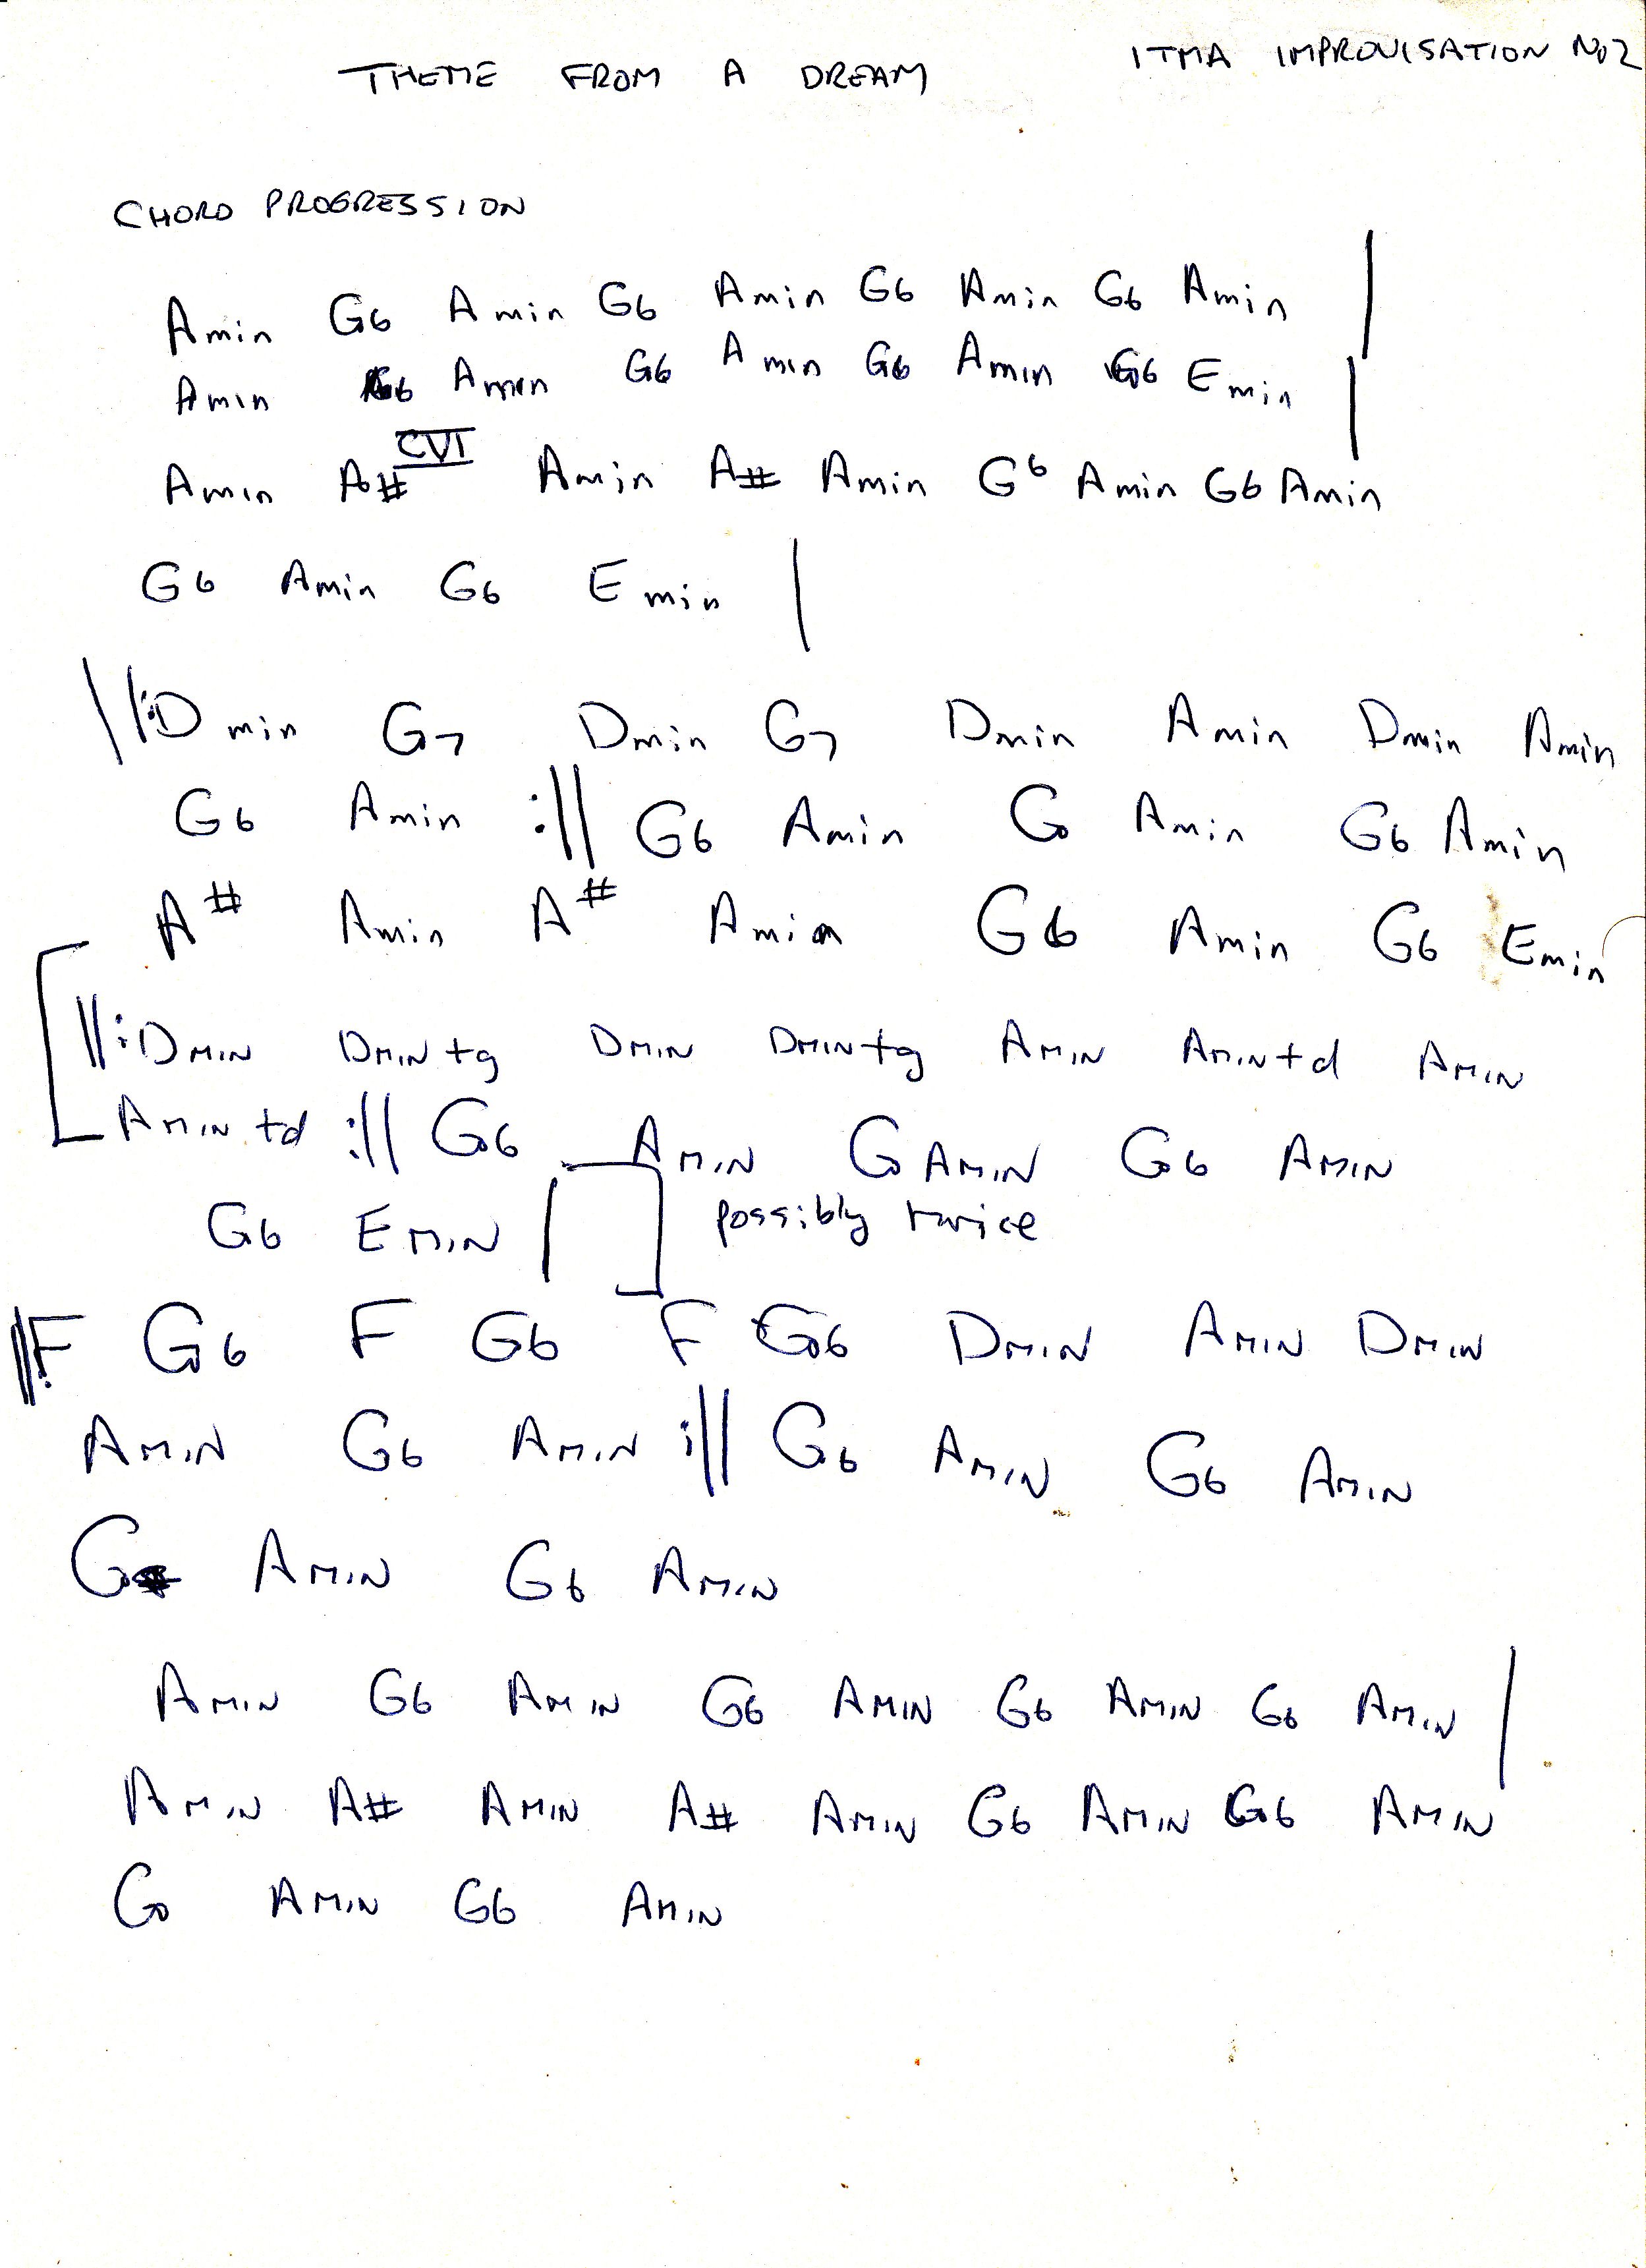 THEME FROM A DREAM ITMA IMPROVISATION No2
CHORD PROGRESSION
Amin G6 Amin G6 Amin G6 Amin G6 Amin |
Amin G6 Amin G6 Amin G6 Amin G6 Emin |
CVI
Amin A# Amin A# Amin G6 Amin G6 Amin
G6 Amin G6 Emin |
||: Dmin G7 Dmin G7 Dmin Amin Dmin Amin
G6 Amin :|| G6 Amin G Amin G6 Amin
A# Amin A# Amin G6 Amin G6 Emin
[ ||: DMIN DMIN+g DMIN DMIN+g AMIN AMIN+d AMIN
AMIN+d :|| G6 AMIN G AMIN G6 AMIN
G6 EMIN | ] possibly twice
||: F G6 F G6 F G6 DMIN AMIN DMIN
AMIN G6 AMIN :|| G6 AMIN G6 AMIN
G AMIN G6 AMIN
AMIN G6 AMIN G6 AMIN G6 AMIN G6 AMIN |
AMIN A# AMIN A# AMIN G6 AMIN G6 AMIN
G AMIN G6 AMIN